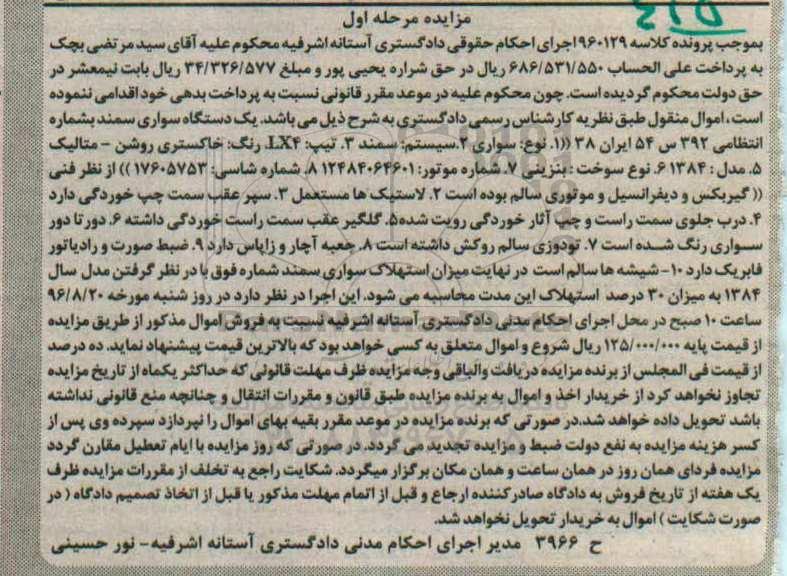 ۶۱۵
مزایده مرحله اول
بموجب پرونده کلاسه ۹۶۰۱۲۹ اجرای احکام حقوقی دادگستری آستانه اشرفیه محکوم علیه آقای سید مرتضی بچک
به پرداخت علی الحساب ۶۸۶/۵۳۱/۵۵۰ ریال در حق شراره یحیی پور و مبلغ ۳۴/۳۲۶/۵۷۷ ریال بابت نیمعشر در
حق دولت محکوم گردیده است. چون محکوم علیه در موعد مقرر قانونی نسبت به پرداخت بدهی خود اقدامی ننموده
است، اموال منقول طبق نظریه کارشناس رسمی دادگستری به شرح ذیل می باشد. یک دستگاه سواری سمند بشماره
انتظامی ۳۹۲ س ۵۴ ایران ۳۸ ((۱. نوع: سواری ۲.سیستم: سمند ۳. تیپ: LX۴. رنگ: خاکستری روشن - متالیک
۵. مدل : ۱۳۸۴ ۶. نوع سوخت : بنزینی ۷. شماره موتور: ۱۲۴۸۴۰۶۴۶۰۱ ۸. شماره شاسی: ۱۷۶۰۵۷۵۳ )) از نظر فنی
(( گیربکس و دیفرانسیل و موتوری سالم بوده است ۲. لاستیک ها مستعمل ۳. سپر عقب سمت چپ خوردگی دارد
۴. درب جلوی سمت راست و چپ آثار خوردگی رویت شده۵. گلگیر عقب سمت راست خوردگی داشته ۶. دور تا دور
سواری رنگ شده است ۷. تودوزی سالم روکش داشته است ۸. جعبه آچار و زاپاس دارد ۹. ضبط صورت و رادیاتور
فابریک دارد ۱۰- شیشه ها سالم است در نهایت میزان استهلاک سواری سمند شماره فوق با در نظر گرفتن مدل سال
۱۳۸۴ به میزان ۳۰ درصد استهلاک این مدت محاسبه می شود. این اجرا در نظر دارد در روز شنبه مورخه ۹۶/۸/۲۰
ساعت ۱۰ صبح در محل اجرای احکام مدنی دادگستری آستانه اشرفیه نسبت به فروش اموال مذکور از طریق مزایده
از قیمت پایه ۱۲۵/۰۰۰/۰۰۰ ریال شروع و اموال متعلق به کسی خواهد بود که بالاترین قیمت پیشنهاد نماید. ده درصد
از قیمت فی المجلس از برنده مزایده دریافت والباقی وجه مزایده ظرف مهلت قانونی که حداکثر یکماه از تاریخ مزایده
تجاوز نخواهد کرد از خریدار اخذ و اموال به برنده مزایده طبق قانون و مقررات انتقال و چنانچه منع قانونی نداشته
باشد تحویل داده خواهد شد.در صورتی که برنده مزایده در موعد مقرر بقیه بهای اموال را نپردازد سپرده وی پس از
کسر هزینه مزایده به نفع دولت ضبط و مزایده تجدید می گردد. در صورتی که روز مزایده با ایام تعطیل مقارن گردد
مزایده فردای همان روز در همان ساعت و همان مکان برگزار میگردد. شکایت راجع به تخلف از مقررات مزایده ظرف
یک هفته از تاریخ فروش به دادگاه صادرکننده ارجاع و قبل از اتمام مهلت مذکور یا قبل از اتخاذ تصمیم دادگاه ( در
صورت شکایت ) اموال به خریدار تحویل نخواهد شد.
ح ۳۹۶۶ مدیر اجرای احکام مدنی دادگستری آستانه اشرفیه- نور حسینی